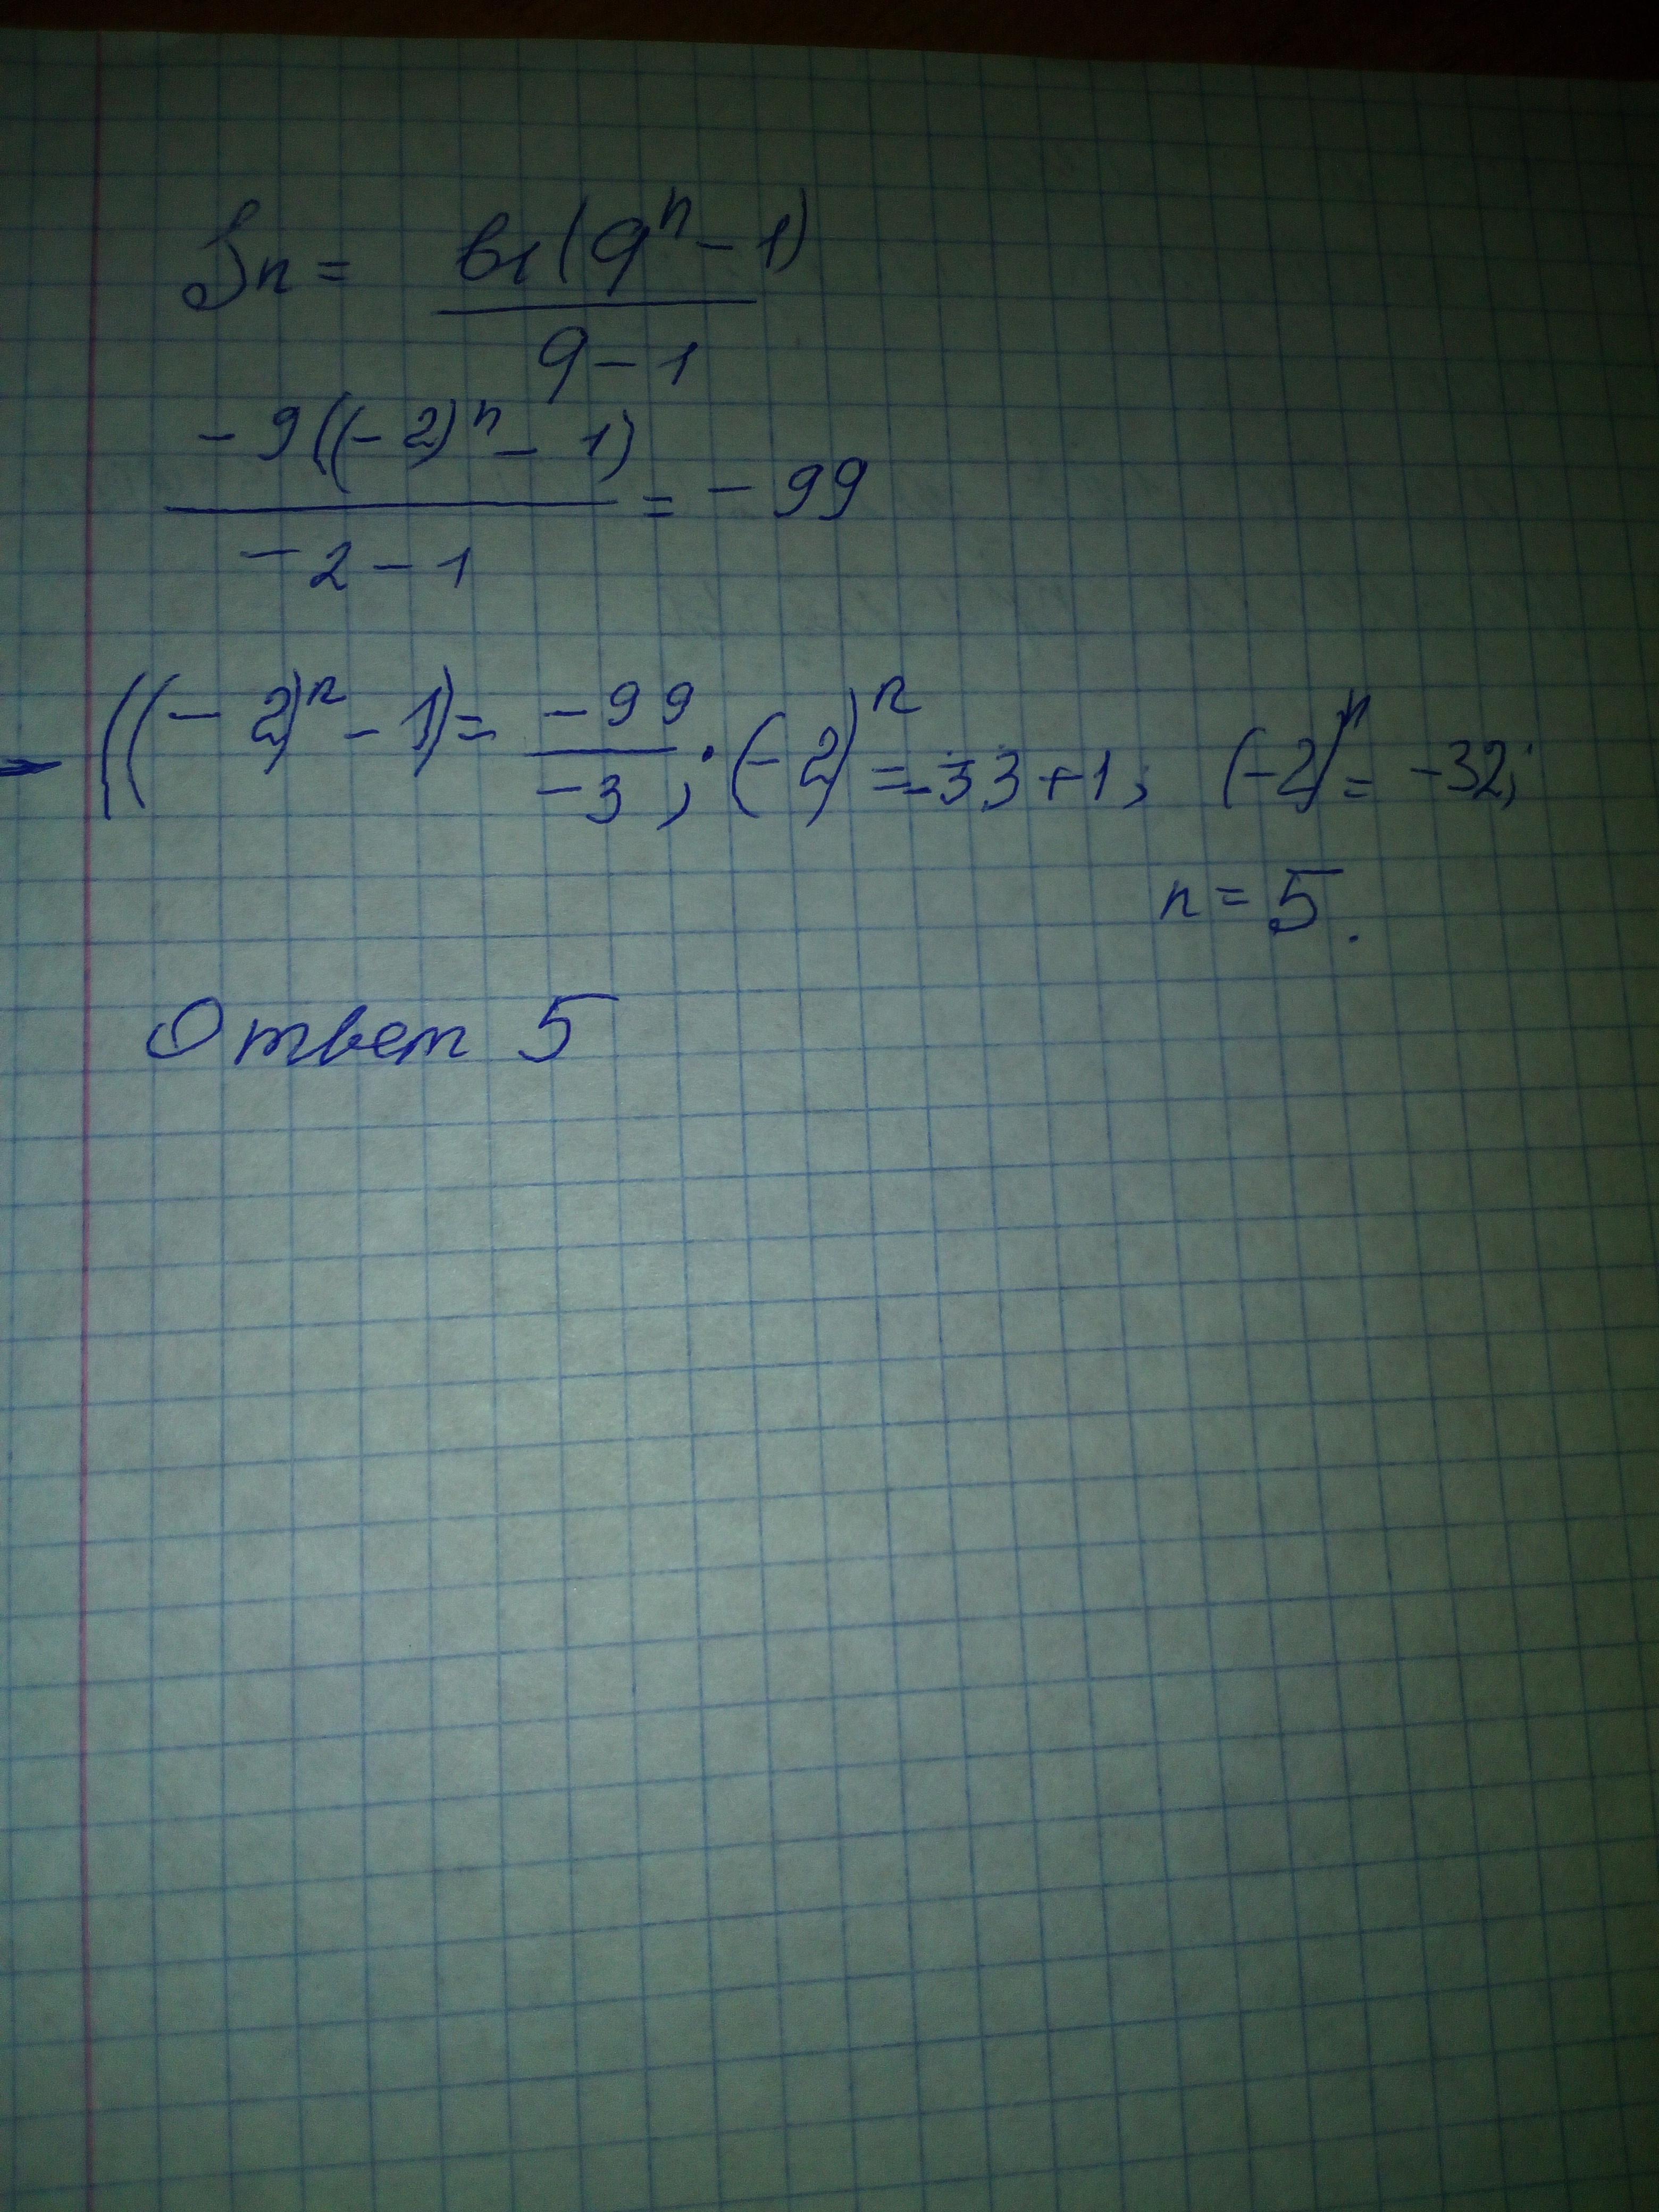 Sn = b₁(qⁿ - 1)
q - 1
-9((-2)ⁿ - 1)
-2 - 1 = -99
- ((-2)ⁿ - 1) = -99/-3; (-2)ⁿ = -33 + 1; (-2)ⁿ = -32;
n = 5.
Ответ 5